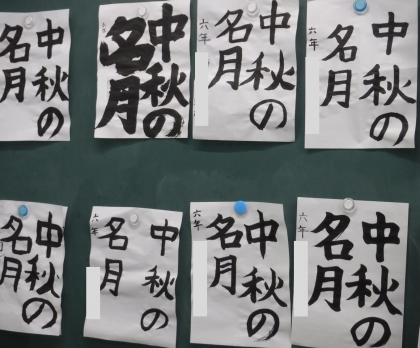 中秋の
名月
中秋の
名月
六年
中秋の
名月
六年
中秋の
名月
六年
中秋の
名月
中秋の
名月
六年
中秋の
名月
六年
中秋の
名月
六年